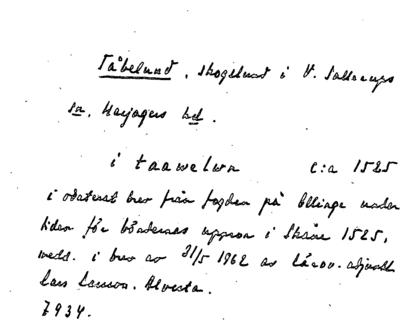 Tåbelund, skogslund i V. Sallerups
sn, Harjagers hd.
i taawelwn c:a 1525
i odaterat brev från fogden på Ellinge under
tiden för böndernas uppror i Skåne 1525,
medd. i brev av 31/5 1962 av lärov.adjunkt
Lars Larsson. Alvesta.
7934.